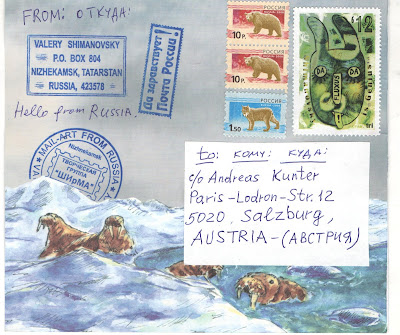 FROM: ОТКУДА:
VALERY SHIMANOVSKY
P.O. BOX 804
NIZHEKAMSK, TATARSTAN
RUSSIA, 423578
Да здравствует
Почта России!
Hello from RUSSIA.
MAIL-ART FROM RUSSIA
Nizhnekamsk
ТВОРЧЕСКАЯ
ГРУППА
"ШИрМА"
РОССИЯ
10 Р.
РОССИЯ
10 Р.
РОССИЯ
1.50
12
DA
DA
FLUXUS
to: кому: куда:
c/o Andreas Kunter
Paris-Lodron-Str. 12
5020, Salzburg,
AUSTRIA-(АВСТРИЯ)